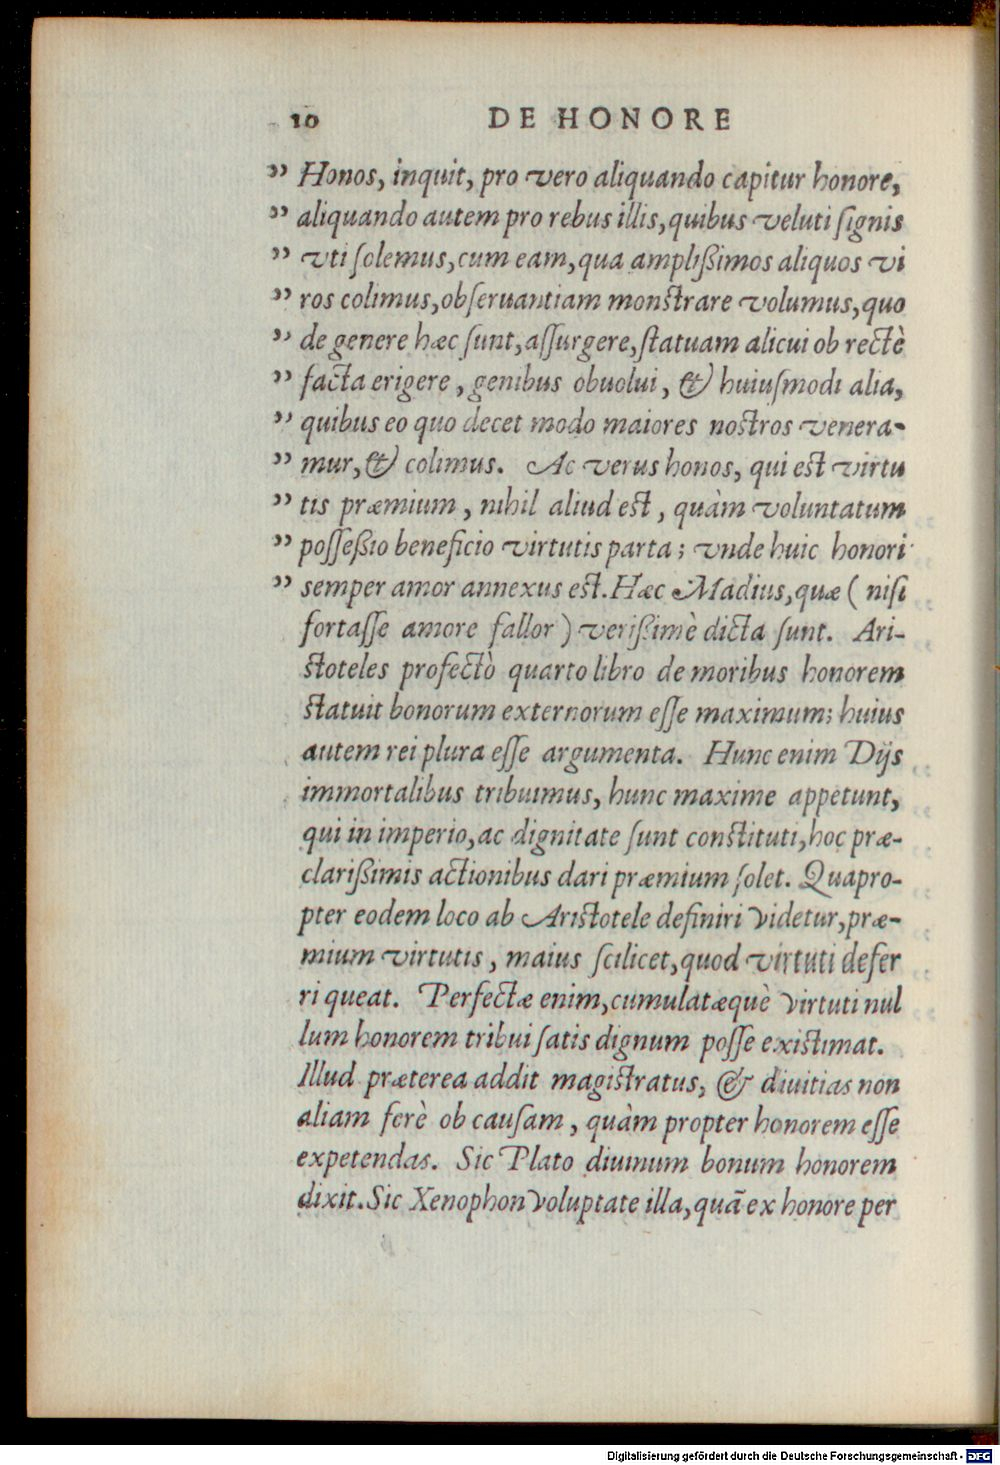 10 DE HONORE
” Honos, inquit, pro vero aliquando capitur honore,
” aliquando autem pro rebus illis, quibus veluti ſignis
” vti ſolemus, cum eam, qua ampliſſimos aliquos vi
” ros colimus, obſeruantiam monſtrare volumus, quo
” de genere hæc ſunt, aſſurgere, ſtatuam alicui ob rectè
” facta erigere, genibus obuolui, & huiuſmodi alia,
” quibus eo quo decet modo maiores noſtros venera-
” mur, & colimus. Ac verus honos, qui eſt virtu
” tis præmium, nihil aliud eſt, quàm voluntatum
” poſſeßio beneficio virtutis parta; vnde huic honori
” semper amor annexus eſt. Hæc Madius, quæ ( niſi
fortaſſe amore fallor ) verißimè dicta ſunt. Ari-
ſtoteles profectò quarto libro de moribus honorem
ſtatuit bonorum externorum eſſe maximum; huius
autem rei plura eſſe argumenta. Hunc enim Dijs
immortalibus tribuimus, hunc maxime appetunt,
qui in imperio, ac dignitate ſunt conſtituti, hoc præ-
clarißimis actionibus dari præmium ſolet. Quapro-
pter eodem loco ab Ariſtotele definiri videtur, præ-
mium virtutis, maius ſcilicet, quod virtuti defer
ri queat. Perfectæ enim, cumulatæquè virtuti nul
lum honorem tribui ſatis dignum poſſe exiſtimat.
Illud præterea addit magiſtratus, & diuitias non
aliam ferè ob cauſam, quàm propter honorem eſſe
expetendas. Sic Plato diuinum bonum honorem
dixit. Sic Xenophon voluptate illa, quã ex honore per
Digitalisierung gefördert durch die Deutsche Forschungsgemeinschaft - DFG